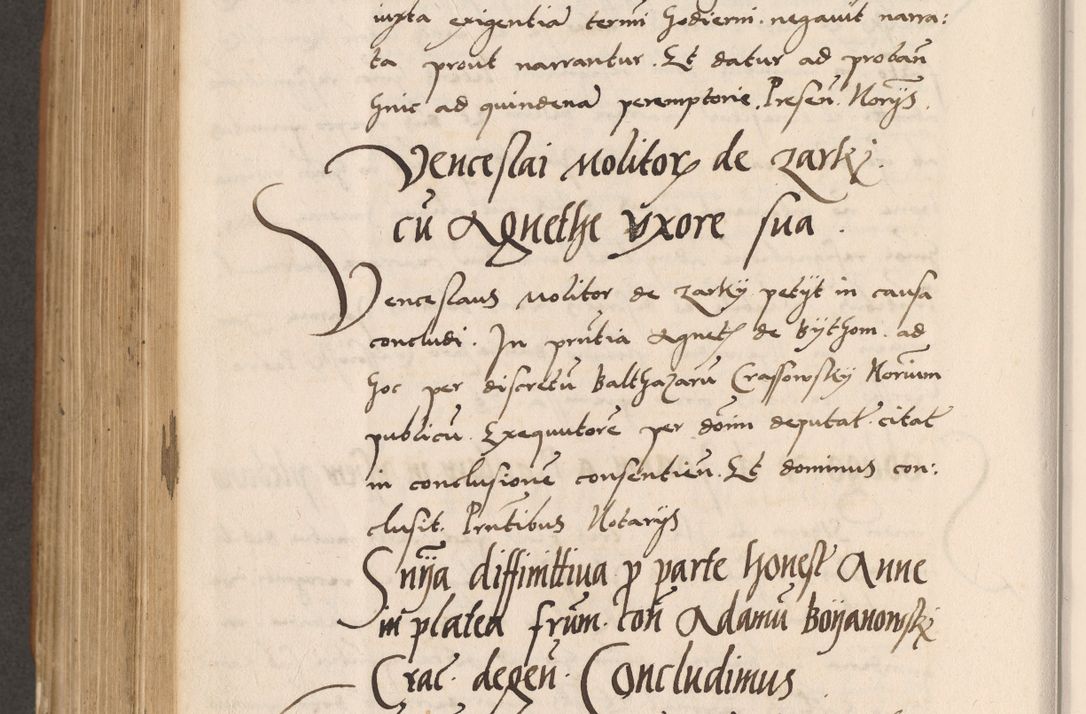 iuxta exigentiã termi hodierni. negavit narra:
ta prout narrantur. Et datur ad proban̄
huic ad quindenã peremptorie. Presen̄. Norijs.
Venceslai Molitor de zarky.
cū Agnethe vxore sua.
Venceslaus Molitor de zarky petijt in causa
concludi. In prn̄tia Agneth de Bythom. ad
hoc per discretū Balthazarū Crassowsky Norium
publicū. Exequutorē per dōim deputat. citat
in conclusionē consentien̄. Et dominus con:
clusit. Prn̄tibus Notarijs
Snīja diffinittiua p parte honest Anne
in platea frūm. con̄ Adamū Boijanowskj
Crac. degen̄. Concludimus